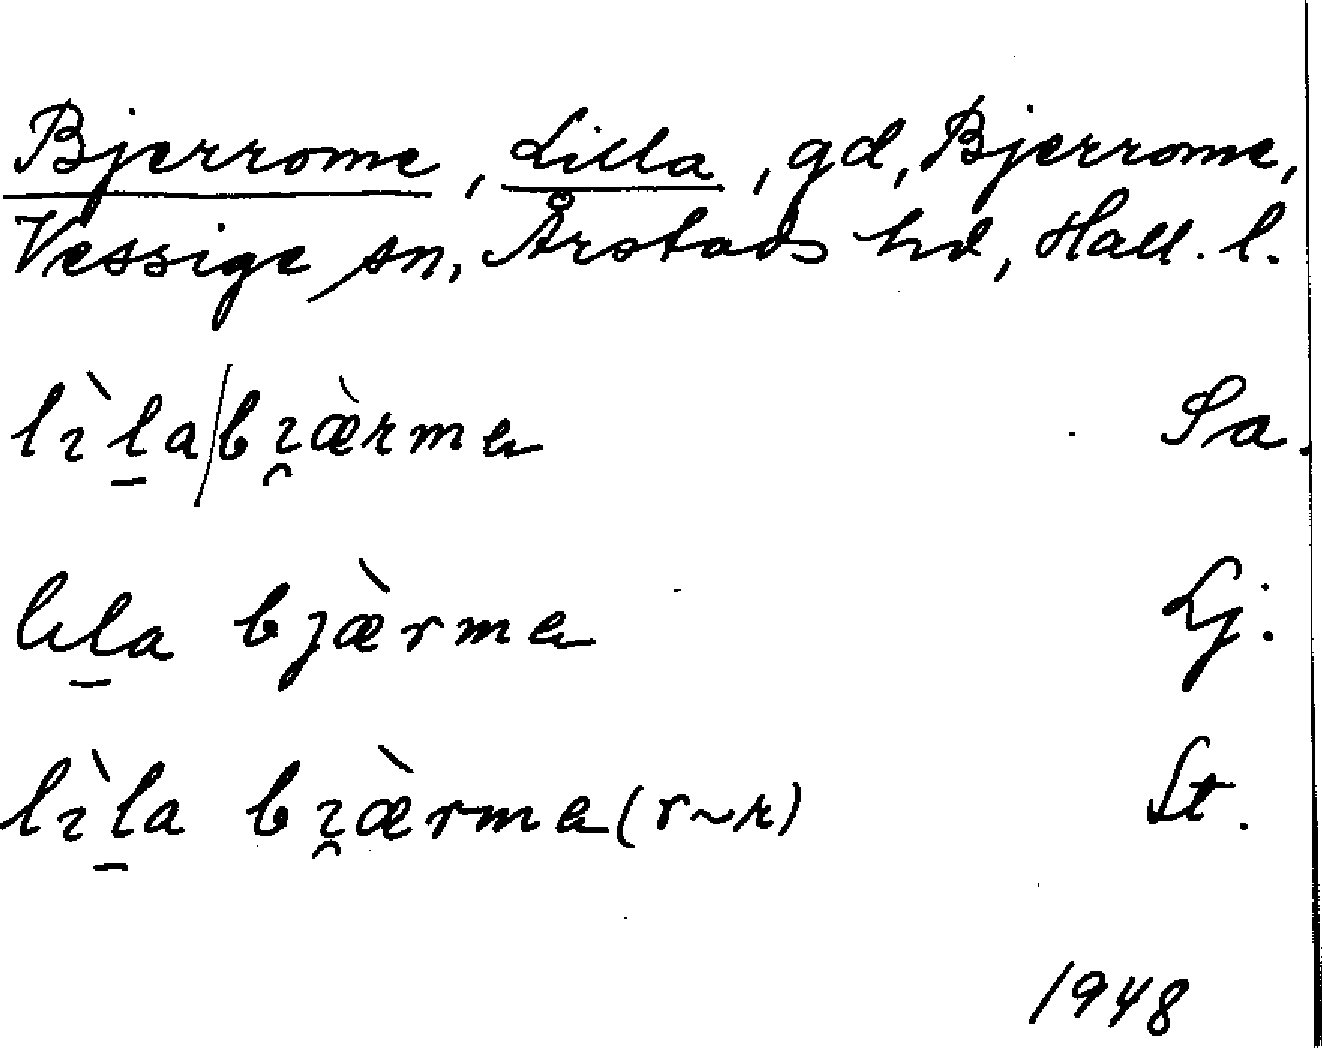 Bjerrome, Lilla, gd, Bjerrome,
Vessige sn, Årstads hd, Hall. l.
lɩ̀l̠a/bɩ̯æ̀rmɐ Sa.
lɩl̠a bȷæ̀rmɐ Lj.
lɩ̀l̠a bɩ̯æ̀rmɐ (r~ʀ) St.
1948